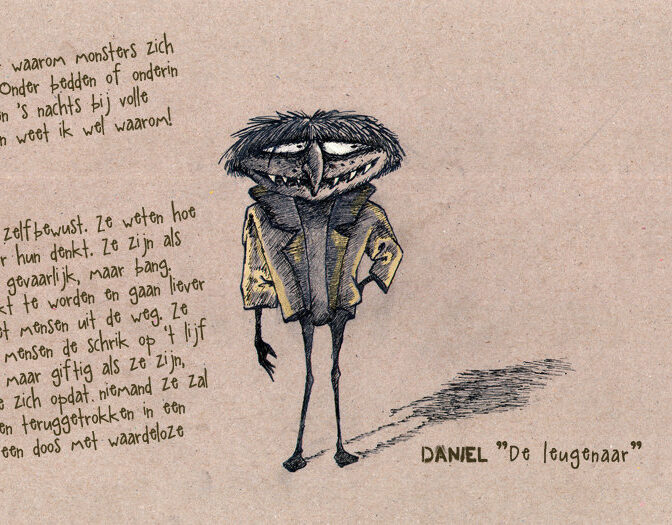 waarom monsters zich
Onder bedden of onderin
's nachts bij volle
weet ik wel waarom!
zelfbewust. Ze weten hoe
hun denkt. Ze zijn als
gevaarlijk, maar bang.
te worden en gaan liever
mensen uit de weg. Ze
mensen de schrik op 't lijf
maar giftig als ze zijn,
zich opdat. niemand ze zal
teruggetrokken in een
een doos met waardeloze
DANIEL "De leugenaar"